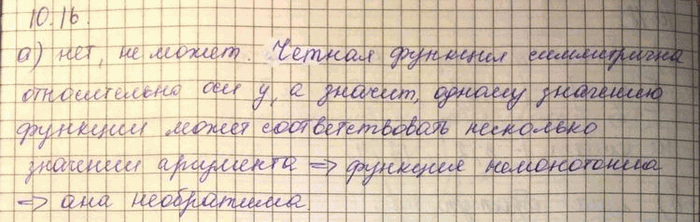 10.16.
а) нет, не может. Четная функция симметрична
относительно оси y, а значит, одному значению
функции может соответствовать несколько
значений аргумента => функция немонотонна
=> она необратима.